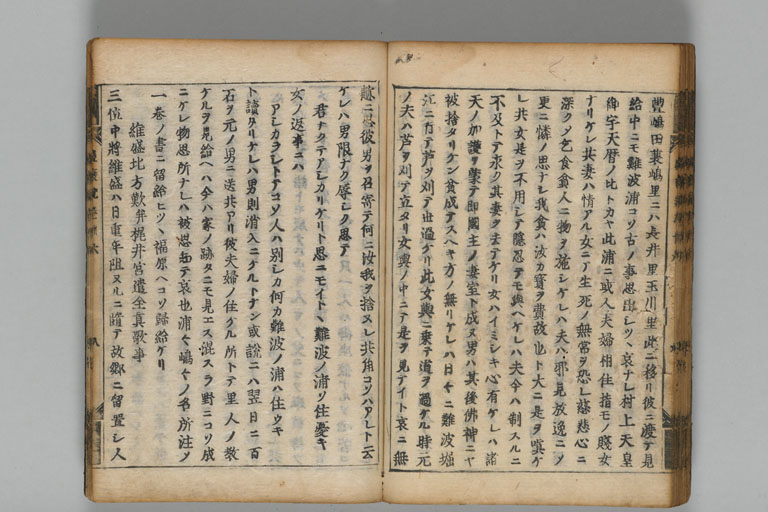 豊嶋田蓑嶋里ニハ長井里玉川里此ニ移リ彼ニ渡テ見
給中ニモ難波浦コソ古ノ事思出シツヽ哀ナレ村上天皇
御宇天暦ノ比トカヤ此浦ニ或人夫婦相住指モノ賤女
ナリケレ共妻ハ情アル女ニテ生死ノ無常ヲ恐レ慈悲心ニ
深クメ乞食貪人ニ物ヲ施シケレハ夫ハ邪見放逸ニメ
更ニ憐ノ思ナレ我貪ハ汝カ寳ヲ費故也ト大ニ是ヲ嗔ケ
レ共女是ヲ不用シテ隠忍テモ與ヘケレハ夫今ハ制スルニ
不及トテ永ク其妻ヲ去テケリ女ハイミシキ心有ケレハ諸
天ノ加護ヲ蒙テ即國主ノ妻室ト成ヌ男ハ其後佛神ニヤ
被捨タリケン貧成テスヘキ方ノ無リケレハ日々ニ難波堀
江ニ行テ芦ヲ刈テ世過ケリ此女輿ニ乗テ道ヲ過ケル時元
ノ夫ハ芦ヲ刈テ立タリ女輿ノ中ニテ是ヲ見テイト哀ニ無
慙ニ思彼男ヲ召寄テ何ニ汝我ヲ捨ヌレ共角コソハアレト云
ケレハ男限ナク辱シク思テ
君ナクテアシカリケリト思ニモイトヽ難波ノ浦ソ住憂キ
女ノ返事ニハ
アシカラシトテコソ人ハ別レシカ何カ難波ノ浦ハ住ウキ
ト讀タリケレハ男則消入ニケルトナン或説ニハ翌日ニ百
石ヲ元ノ男ニ送共アリ彼夫婦ノ住ケル所トテ里人ノ教
ケルヲ見給ヘハ今ハ家ノ跡タニモ見エス混スラ野ニコソ成
ニケレ物思所ナレハ被思知テ哀也浦々嶋々ノ名所注メ
一卷ノ書ニ留給ヒツヽ福原ヘコソ歸給ケリ
維盛北方歎弁梶井宮遣全真歌事
三位中將維盛ハ日重年阻ヌルニ隨テ故郷ニ留置シ人